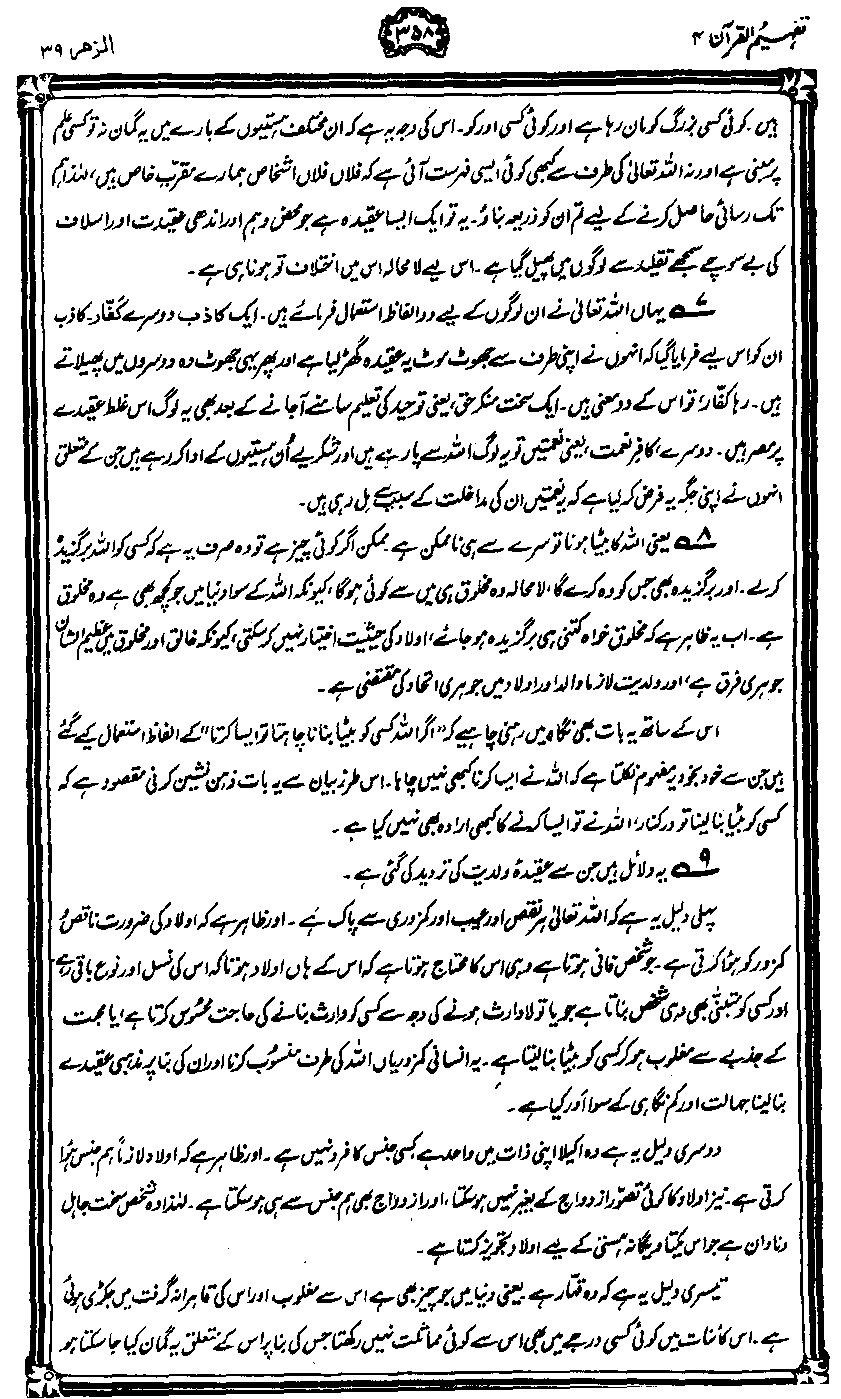 تفہیم القرآن ۴
۳۵۸
الزمر ۳۹
ہیں۔ کوئی کسی بزرگ کو مان رہا ہے اور کوئی کسی اور کو۔ اس کی وجہ یہ ہے کہ ان مختلف ہستیوں کے بارے میں یہ گمان نہ تو کسی علم
پر مبنی ہے اور نہ اللہ تعالیٰ کی طرف سے کبھی کوئی ایسی فہرست آئی ہے کہ فلاں فلاں اشخاص ہمارے مقرب خاص ہیں، لہٰذا ہم
تک رسائی حاصل کرنے کے لیے تم ان کو ذریعہ بناؤ۔ یہ تو ایک ایسا عقیدہ ہے جو محض وہم اور اندھی عقیدت اور اسلاف
کی بے سوچے سمجھے تقلید سے لوگوں میں پھیل گیا ہے۔ اس لیے لامحالہ اس میں اختلاف تو ہونا ہی ہے۔
۷ یہاں اللہ تعالیٰ نے ان لوگوں کے لیے دو الفاظ استعمال فرمائے ہیں۔ ایک کاذب دوسرے کَفّار۔ کاذب
ان کو اس لیے فرمایا گیا کہ انہوں نے اپنی طرف سے جھوٹ موٹ یہ عقیدہ گھڑ لیا ہے اور پھر یہی جھوٹ وہ دوسروں میں پھیلاتے
ہیں۔ رہا کفّار، تو اس کے دو معنی ہیں۔ ایک سخت منکرِ حق، یعنی توحید کی تعلیم سامنے آجانے کے بعد بھی یہ لوگ اس غلط عقیدے
پر مصر ہیں۔ دوسرے، کافرِ نعمت، یعنی نعمتیں تو یہ لوگ اللہ سے پا رہے ہیں اور شکریے اُن ہستیوں کے ادا کر رہے ہیں جن کے متعلق
انہوں نے اپنی جگہ یہ فرض کر لیا ہے کہ یہ نعمتیں ان کی مداخلت کے سبب سے مل رہی ہیں۔
۸ یعنی اللہ کا بیٹا ہونا تو سرے سے ہی ناممکن ہے۔ ممکن اگر کوئی چیز ہے تو وہ صرف یہ ہے کہ کسی کو اللہ برگزیدہ
کر لے۔ اور برگزیدہ بھی جس کو وہ کرے گا، لامحالہ وہ مخلوق ہی میں سے کوئی ہوگا، کیونکہ اللہ کے سوا دنیا میں جو کچھ بھی ہے وہ مخلوق
ہے۔ اب یہ ظاہر ہے کہ مخلوق خواہ کتنی ہی برگزیدہ ہو جائے، اولاد کی حیثیت اختیار نہیں کر سکتی، کیونکہ خالق اور مخلوق میں عظیم الشان
جوہری فرق ہے، اور ولدیت لازماً والد اور اولاد میں جوہری اتحاد کی مقتضی ہے۔
اس کے ساتھ یہ بات بھی نگاہ میں رہنی چاہیے کہ "اگر اللہ کسی کو بیٹا بنانا چاہتا تو ایسا کرتا" کے الفاظ استعمال کیے گئے
ہیں جن سے خود بخود یہ مفہوم نکلتا ہے کہ اللہ نے ایسا کرنا کبھی نہیں چاہا۔ اس طرز بیان سے یہ بات ذہن نشین کرنی مقصود ہے کہ
کسی کو بیٹا بنا لینا تو درکنار، اللہ نے تو ایسا کرنے کا کبھی ارادہ بھی نہیں کیا ہے۔
۹ یہ دلائل ہیں جن سے عقیدۂ ولدیت کی تردید کی گئی ہے۔
پہلی دلیل یہ ہے کہ اللہ تعالیٰ ہر نقص اور عیب اور کمزوری سے پاک ہے۔ اور ظاہر ہے کہ اولاد کی ضرورت ناقص و
کمزور کو ہوا کرتی ہے۔ جو شخص فانی ہوتا ہے وہی اس کا محتاج ہوتا ہے کہ اس کے ہاں اولاد ہو تاکہ اس کی نسل اور نوع باقی رہے۔
اور کسی کو متبنیٰ بھی وہی شخص بناتا ہے جو یا تو لاوارث ہونے کی وجہ سے کسی کو وارث بنانے کی حاجت محسوس کرتا ہے، یا محبت
کے جذبے سے مغلوب ہو کر کسی کو بیٹا بنا لیتا ہے۔ یہ انسانی کمزوریاں اللہ کی طرف منسوب کرنا اور ان کی بنا پر مذہبی عقیدے
بنا لینا جہالت اور کم نگاہی کے سوا اور کیا ہے۔
دوسری دلیل یہ ہے وہ اکیلا اپنی ذات میں واحد ہے، کسی جنس کا فرد نہیں ہے۔ اور ظاہر ہے کہ اولاد لازماً ہم جنس ہوا
کرتی ہے۔ نیز اولاد کا کوئی تصوّر ازدواج کے بغیر نہیں ہو سکتا، اور ازدواج بھی ہم جنس سے ہی ہو سکتا ہے۔ لہٰذا وہ شخص سخت جاہل
و نادان ہے جو اس یکتا و یگانہ ہستی کے لیے اولاد تجویز کرتا ہے۔
تیسری دلیل یہ ہے کہ وہ قہّار ہے یعنی دنیا میں جو چیز بھی ہے اس سے مغلوب اور اس کی قاہرانہ گرفت میں جکڑی ہوئی
ہے۔ اس کائنات میں کوئی کسی درجے میں بھی اس سے کوئی مماثلت نہیں رکھتا جس کی بنا پر اس کے متعلق یہ گمان کیا جا سکتا ہو